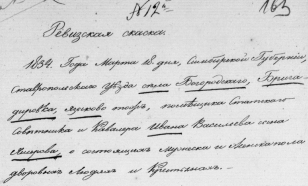 № 12й 163
Ревизская сказка
1834. Года Марта 18. дня, Симбирской Губерніи,
Ставропольскаго Уѣзда села Богородскаго, Брига-
дировка, тожъ, помѣщика Статскаго
Совѣтника и Кавалера Ивана Васильева сына
о состоящихъ мужеска и женскапола
дворовыхъ Людяхъ и Крестьянахъ.